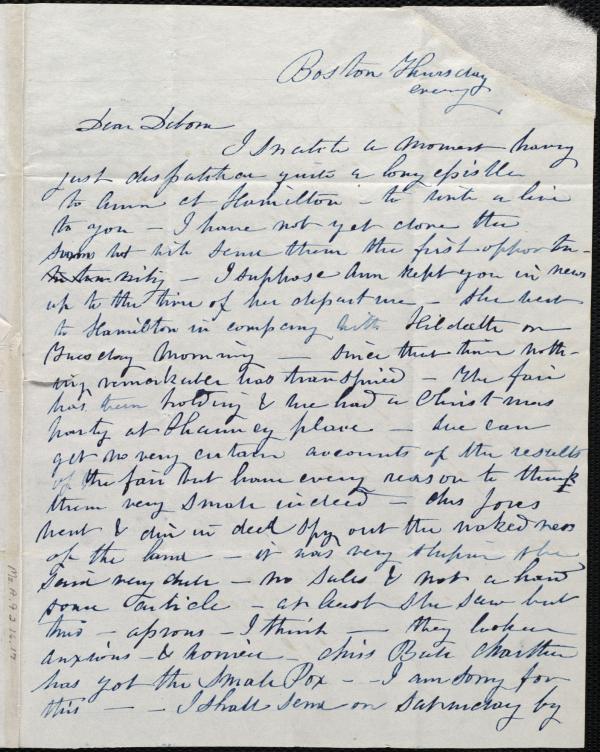 Boston Thursday
evening
Dear Debora
I snatch a moment having
just dispatched quite a long epistle
to Ann at Hamilton - to write a line
to you - I have not yet done the
but will send them the first opportu-
nity - I suppose Ann kept you in news
up to the time of her departure - She went
to Hamilton in company with Hildreth on
Tuesday Morning - since that time noth-
ing remarkable has transpired - The fair
has been holding & we had a Christmas
party at Chauncey place - We can
get no very certain accounts of the results
of the fair but have every reason to think
them very small indeed - Miss Jones
went & did in deed spy out the nakedness
of the land - it was very stupid she
said very dull - no sales & not a hand
some article - at least she saw but
two - aprons - I think - they looked
anxious & worried - Miss Bute
has got the Small Pox - - I am sorry for
this - - I shall send on Saturday by
Ms.A.9.2.12.17